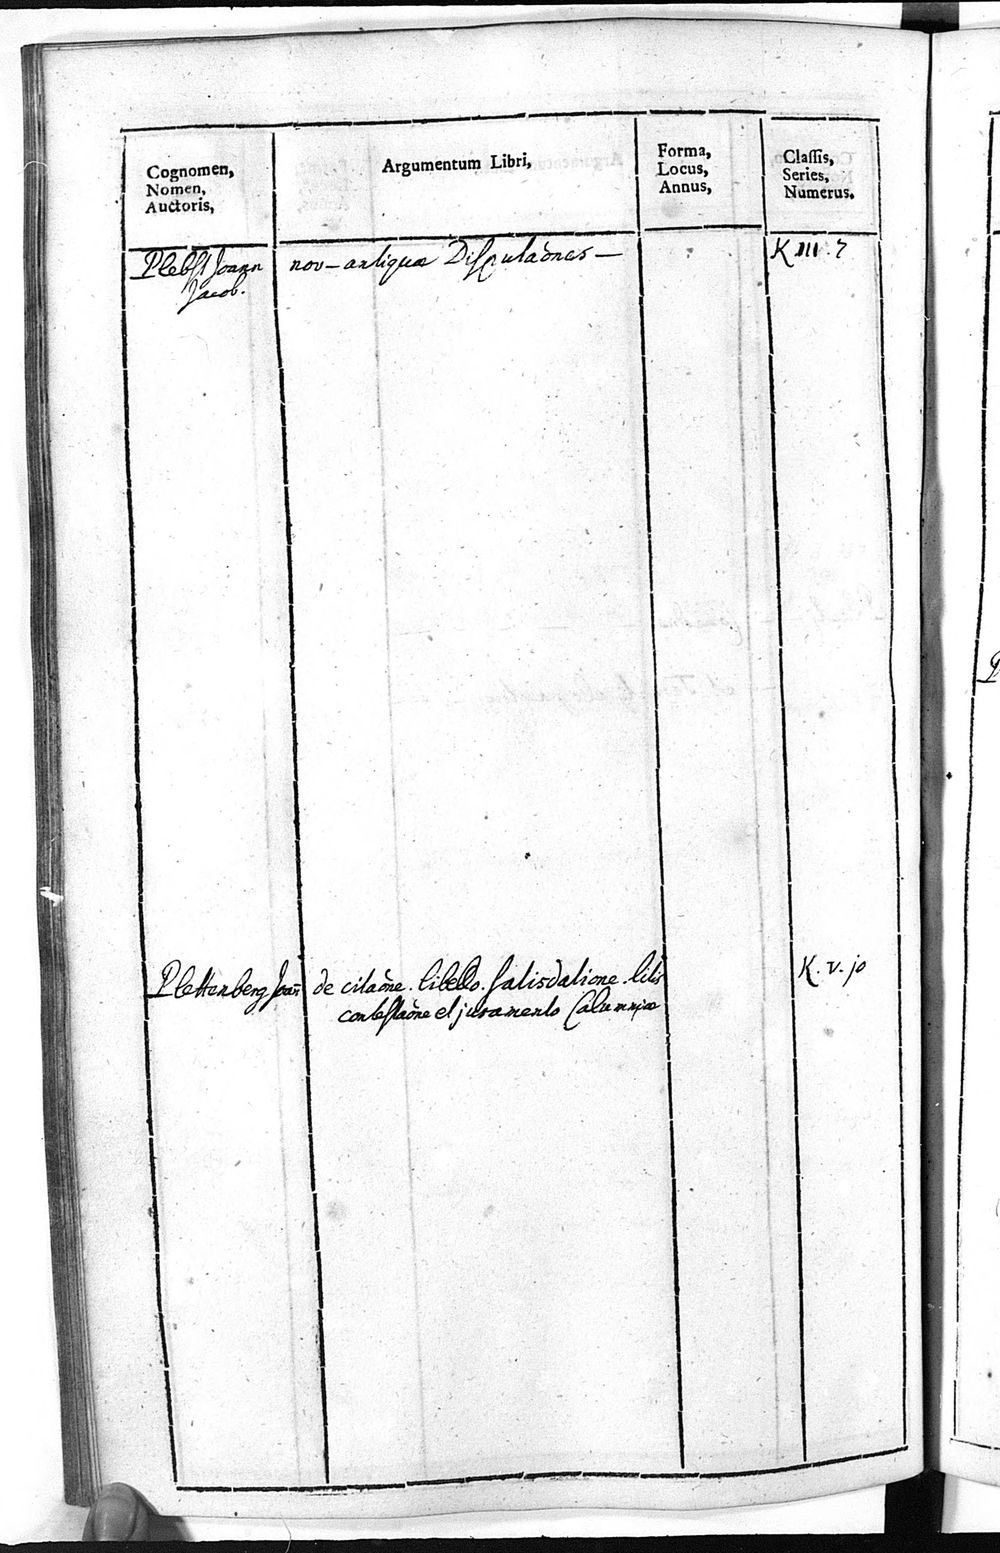 Cognomen,
Nomen,
Auctoris,
Argumentum Libri,
Forma,
Locus,
Annus,
Classis,
Series,
Numerus.
Plebst Joann
Jacob.
nov-antiquæ Disputaõnes —
K III. 7
Plettenberg Joañ
de citaõne. libello. satisdatione. litis
contestaõne et juramento Calumniæ
K. v. jo